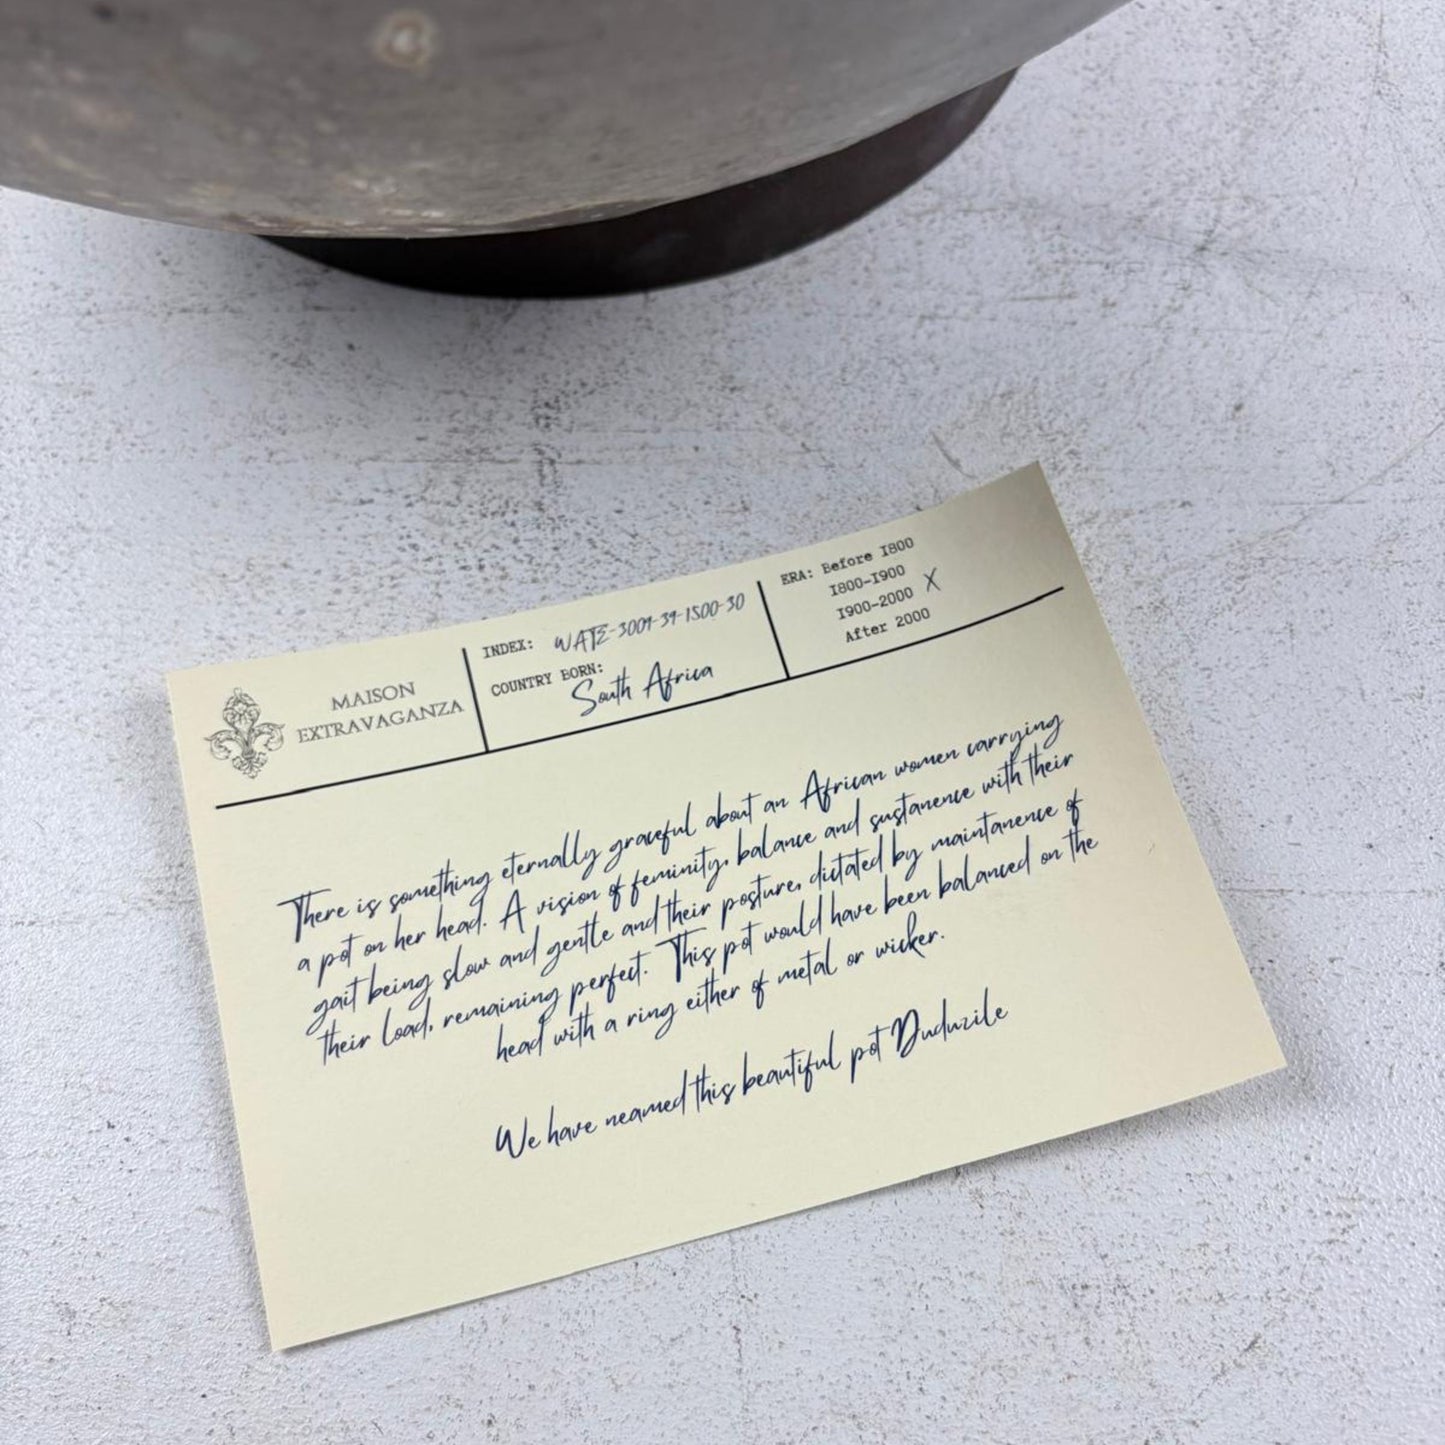 MAISON
EXTRAVAGANZA
INDEX: WATE-3009-39-1500-30
COUNTRY BORN:
South Africa
ERA: Before 1800
1800-1900
1900-2000 X
After 2000
There is something eternally graceful about an African women carrying
a pot on her head. A vision of feminity, balance and sustanence with their
gait being slow and gentle and their posture, dictated by maintanence of
their load, remaining perfect. This pot would have been balanced on the
head with a ring either of metal or wicker.
We have neamed this beautiful pot Duduzile